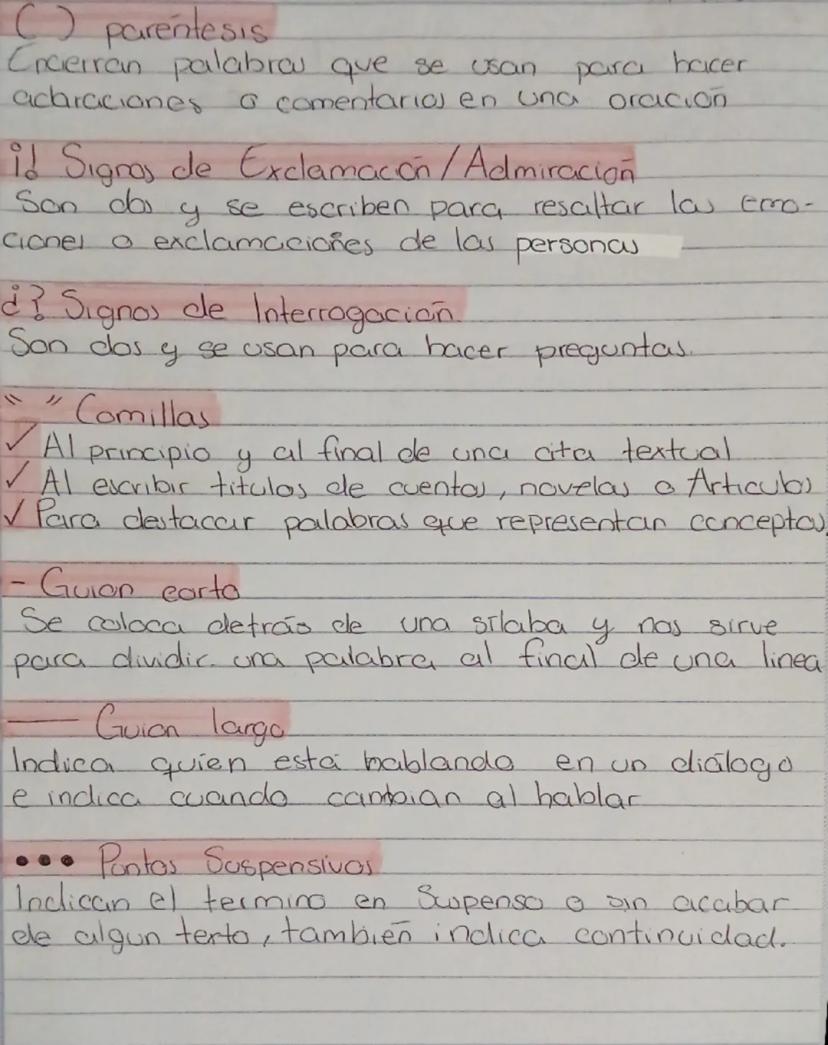 ( ) paréntesis
Encierran palabras que se usan para hacer
aclaraciones o comentarios en una oración
¡! Signos de Exclamación/Admiración
Son dos y se escriben para resaltar las emo-
ciones o exclamaciones de las personas
¿? Signos de Interrogación
Son dos y se usan para hacer preguntas.
" " Comillas
✓ Al principio y al final de una cita textual
✓ Al escribir titulos de cuentos, novelas o Articulos
✓ Para destacar palabras que representan conceptos.
- Guion corto
Se coloca detrás de una sílaba y nos sirve
para dividir una palabra al final de una linea
— Guion largo
Indica quien está hablando en un diálogo
e indica cuando cambian al hablar
... Puntos Suspensivos
Indican el termino en Suspenso o sin acabar
de algun texto, también indica continuidad.